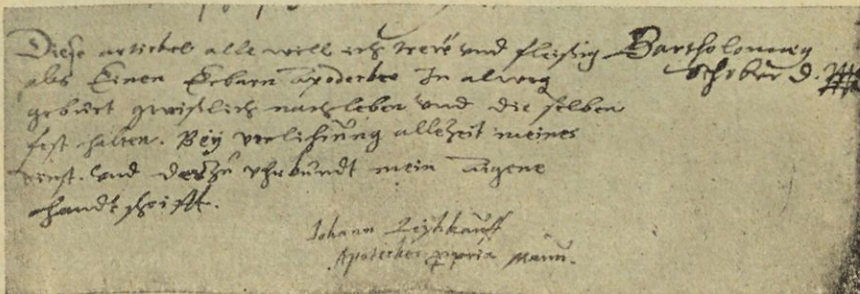 Diese artickel alle will ich trew vnd fleisig
als Einen Erbarn Apodecker In alweg
gebürt gewißlich nachleben vnd die selben
fest halten. Bey verliehrüng allezeit meines
Und darzu vhrkundt mein aigene
handtschrifft.
Bartholomeẏ
Schober D.
Johann Leÿkauff
Apotecker propria manu.